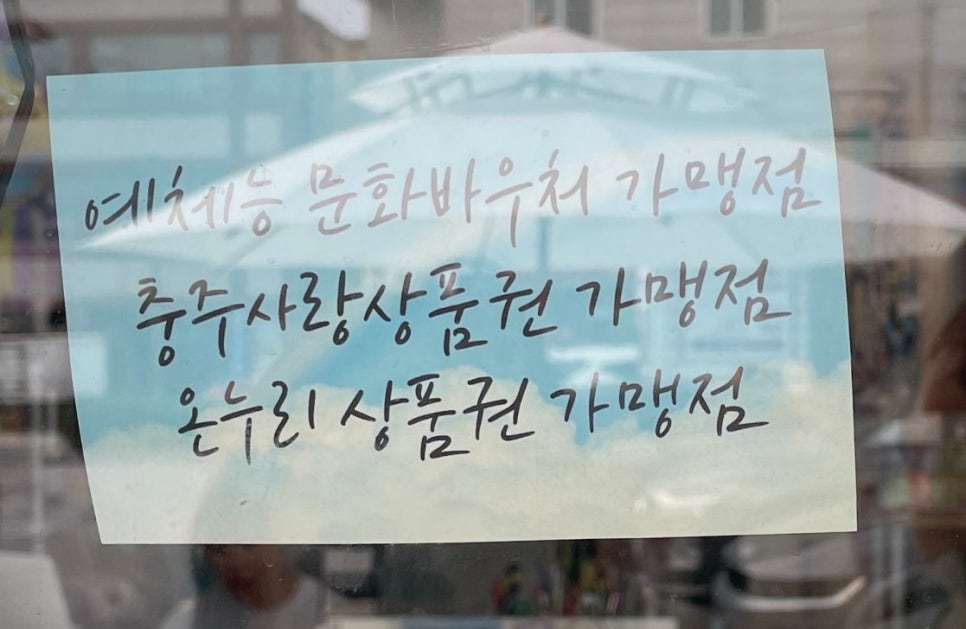 예체능 문화바우처 가맹점
충주사랑상품권 가맹점
온누리 상품권 가맹점